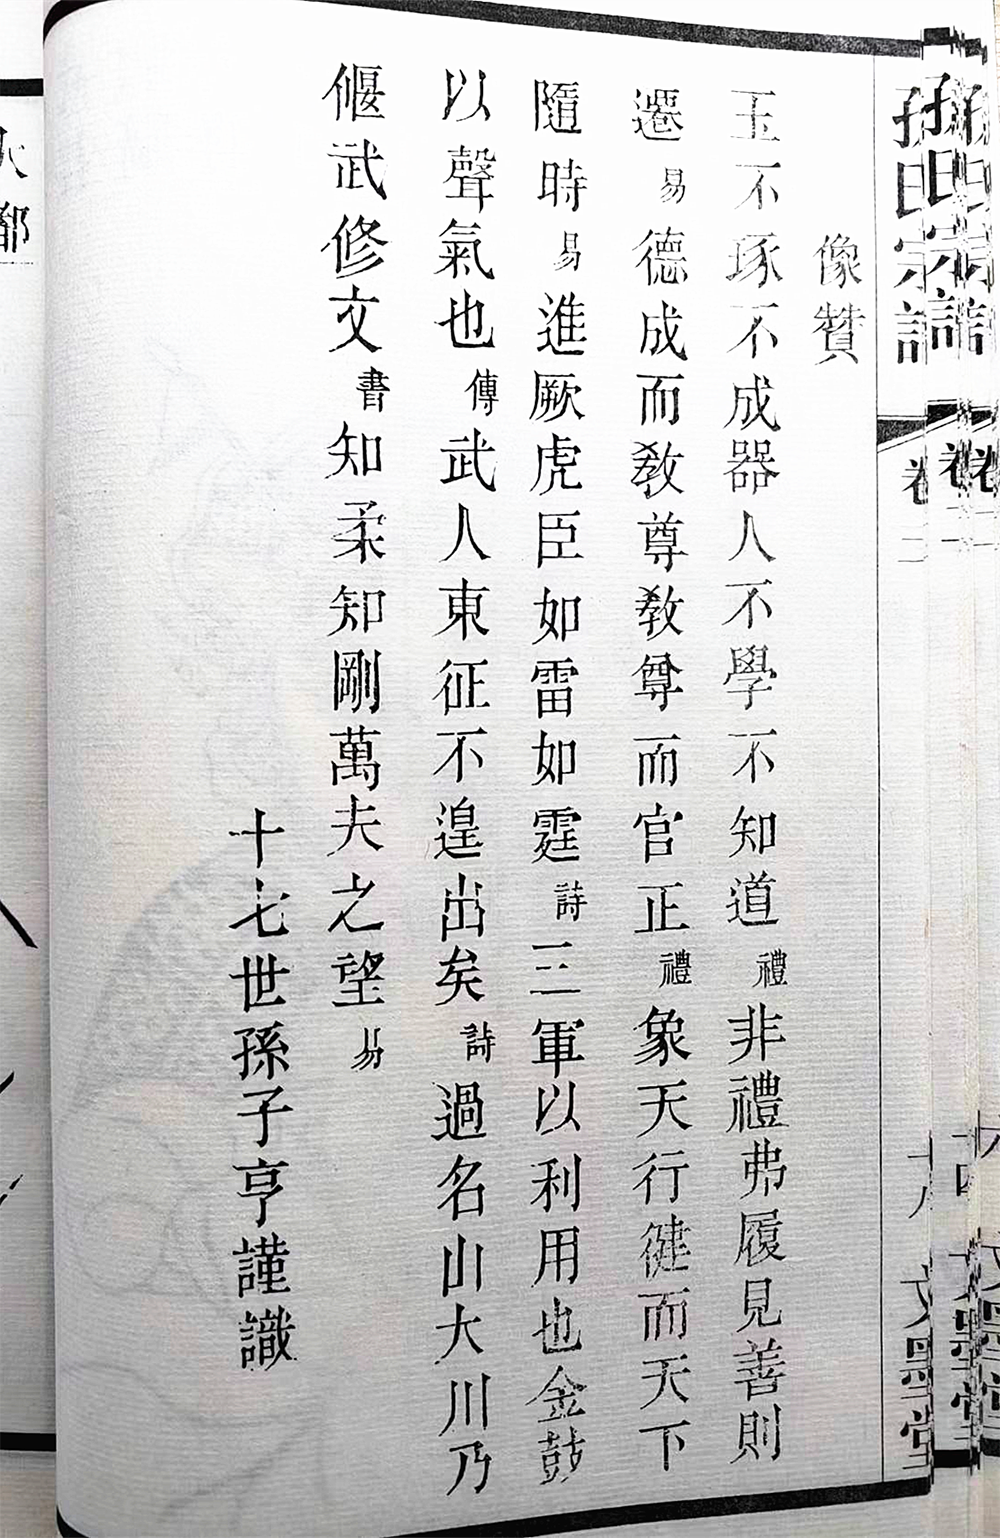 像贊
玉不琢不成器人不學不知道禮非禮弗履見善則
遷易德成而敎尊敎尊而官正禮象天行健而天下
隨時易進厥虎臣如雷如霆詩三軍以利用也金鼓
以聲氣也傳武人東征不遑出矣詩過名山大川乃
偃武修文書知柔知剛萬夫之望易
十七世孫子亨謹識
卷二
文墨堂